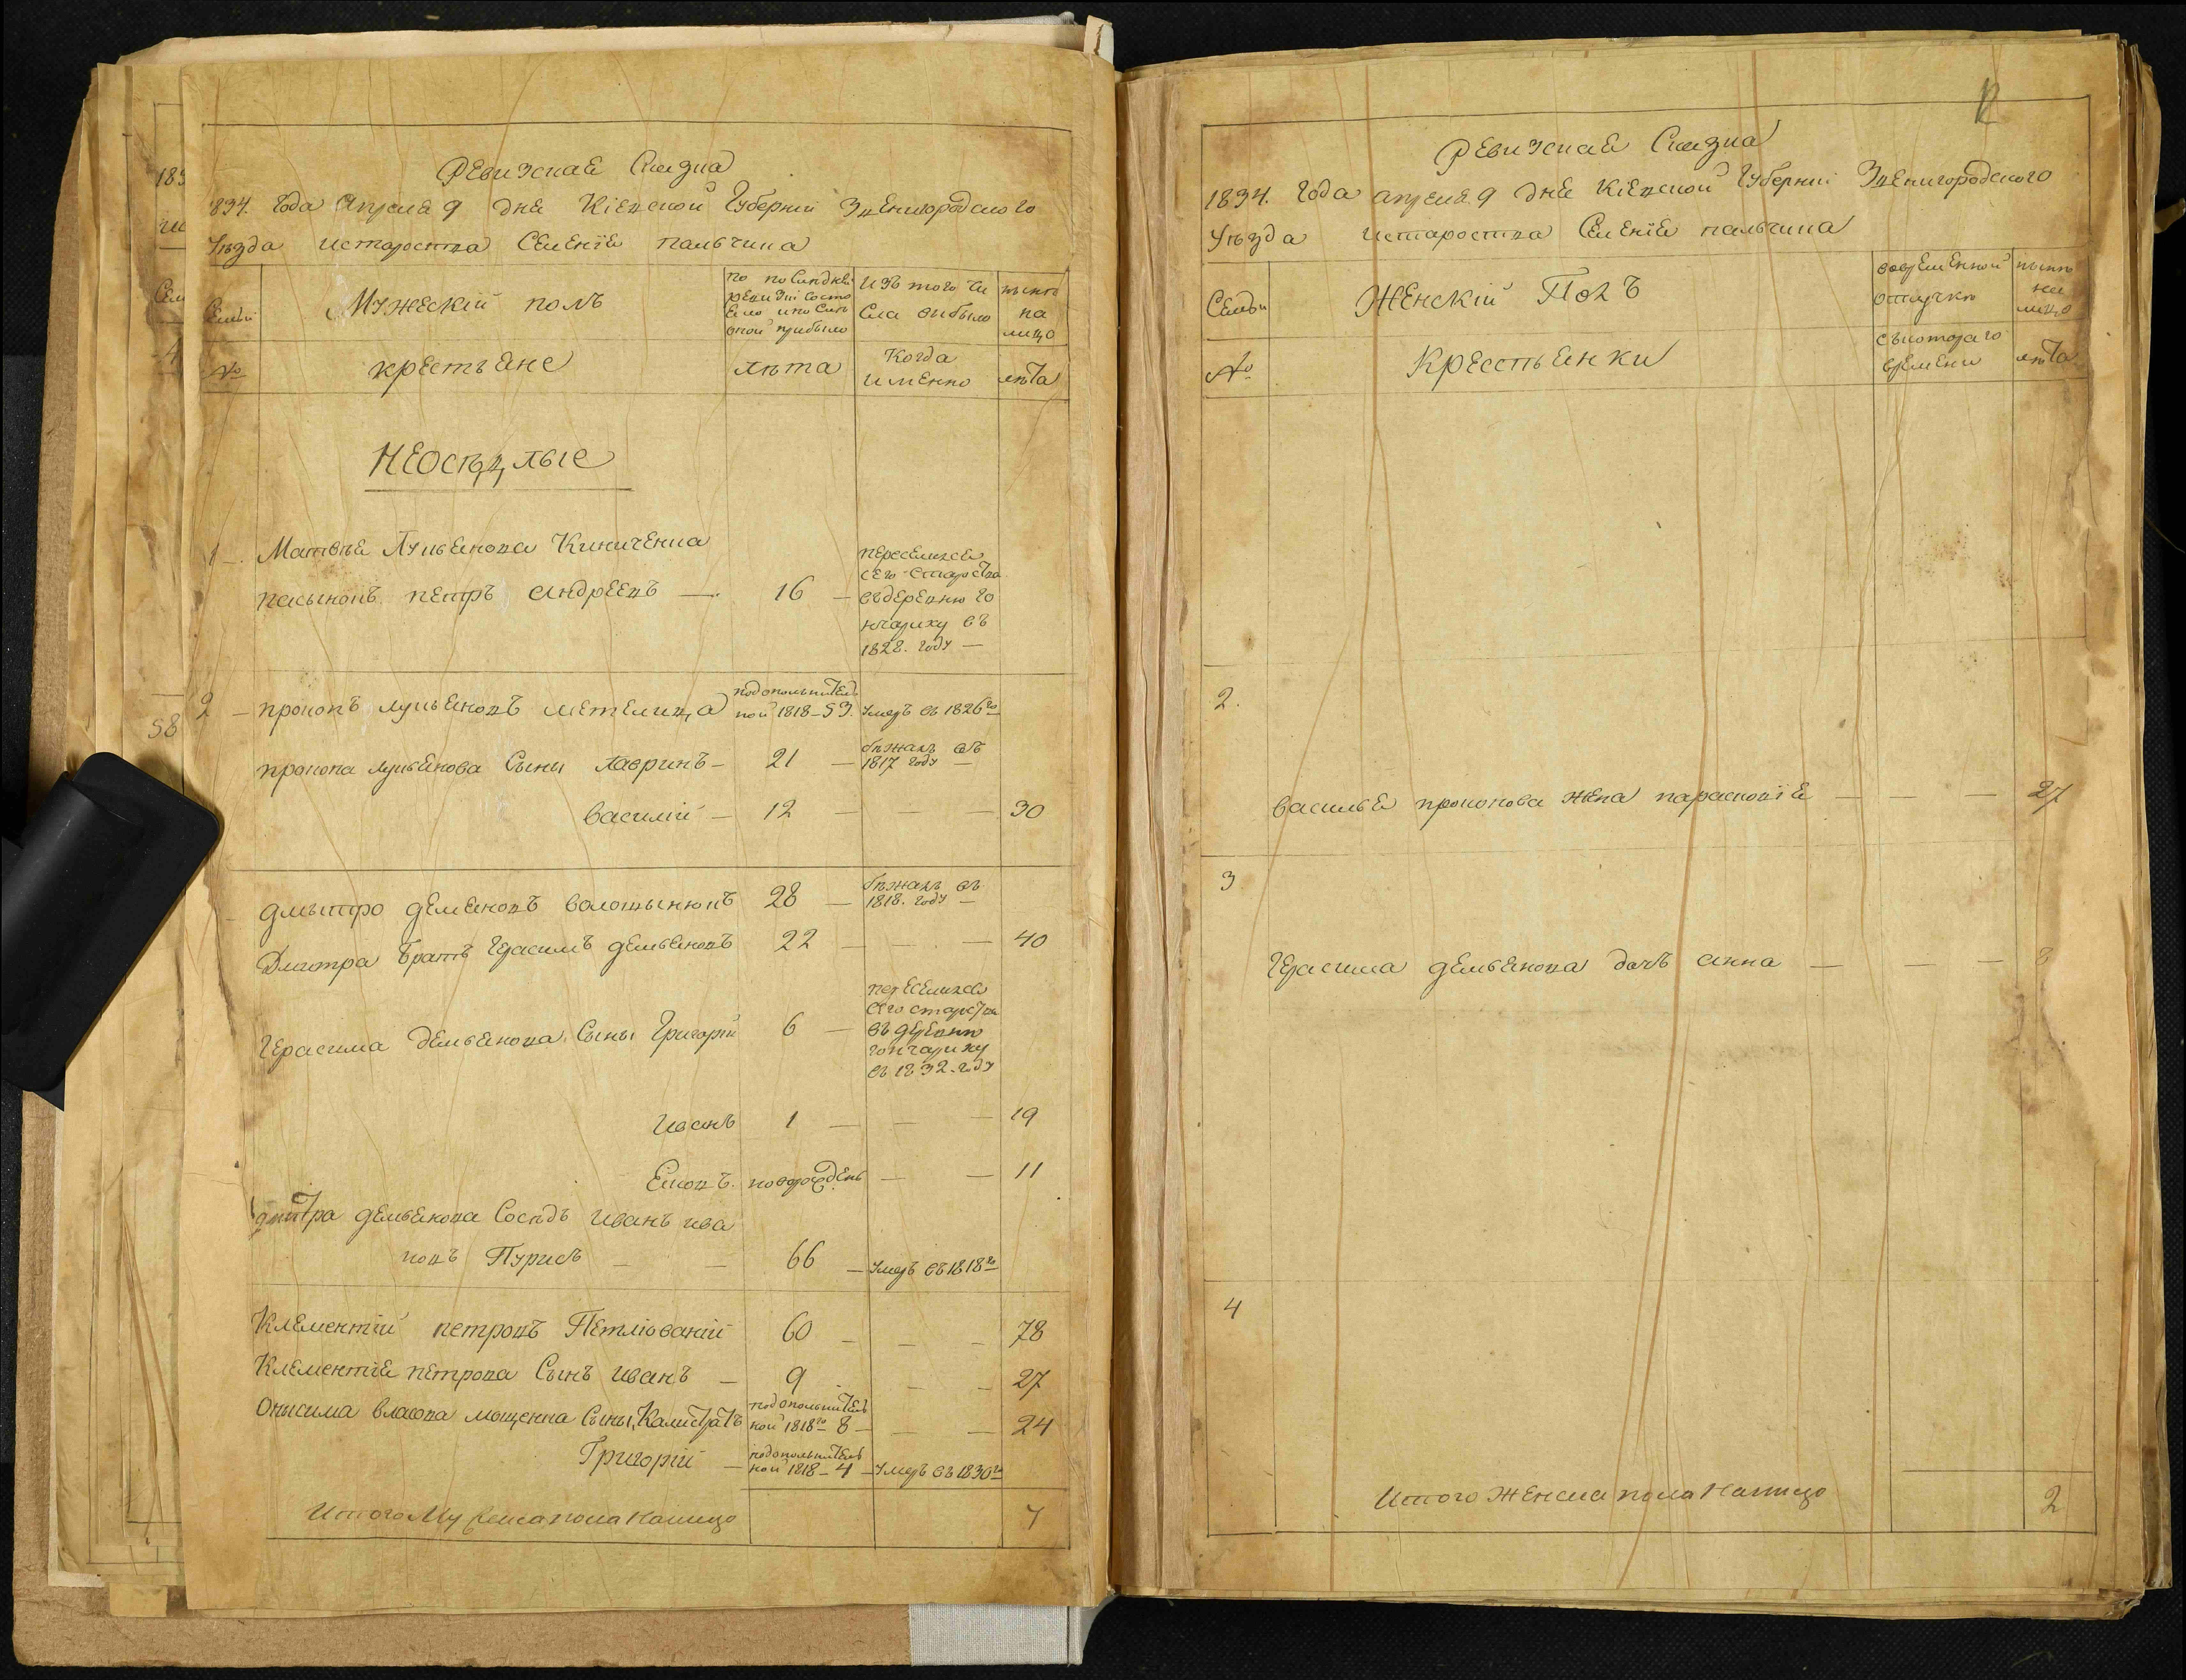 Ревизская Сказка
1834. Года Апреля 9 дня Кіевской Губерніи Звенигородского
Уѣзда и староства Селеніе пальчика
Семьи
Мужескій полъ
по последней ревизіи состояло и после оной прибыло
Изъ того числа выбыло
нынѣ на лицо
№
крестьяне
лѣта
Когда именно
лѣта
Неосѣдлые
1 — Матвѣя Лукьянова Киниченка
пасынокъ петръ андреевъ — 16 —
переселился
сего староства
въ деревню го
нчариху въ
1828. году —
2 — прокопъ лукьяновъ метелица
по дополнител
ной 1818 — 53. Умеръ въ 1826го
прокопа лукьянова Сыны лавринъ — 21 — бежалъ въ
1817 году —
василій — 12 — — — 30
дмытро демяновъ волошынюкъ 28 — бежалъ въ
1818. году —
Дмитра братъ Герасимъ демьяновъ 22 — — — 40
Герасима демьянова Сыны Григорій 6 —
переселился
сего староства
въ деревню
гончариху
въ 1832. году
Иванъ 1 — — — 19
Емонъ. новорожденъ — — 11
дмитра демьянова Сосѣдъ иванъ ива
новъ Пурисъ — — 66 — Умеръ въ 1818го
Клементій петровъ Петліованій 60 — — — 78
Клементія петрова Сынъ иванъ — 9 — — 27
Онисима власова мощенка Сыны, Калистратъ
по дополнител
ной 1818го 8 — — — 24
Григорій —
по дополнител
ной 1818 — 4 — Умеръ въ 1830го
Итого Мужеска пола На лицо 7
Ревизская Сказка
1834. Года апреля 9 дня Кіевской Губерніи Звенигородского
Уѣзда и староства Селеніе пальчика
Семьи
Женскій Полъ
во временной отлучкѣ
нынѣ на лицо
№
Крестьянки
съ котораго времени
лѣта
2.
василья прокопова жена параскопія — — — 27
3
Герасима демьянова дочъ анна — — — 8
4
Итого Женска пола На лицо 2